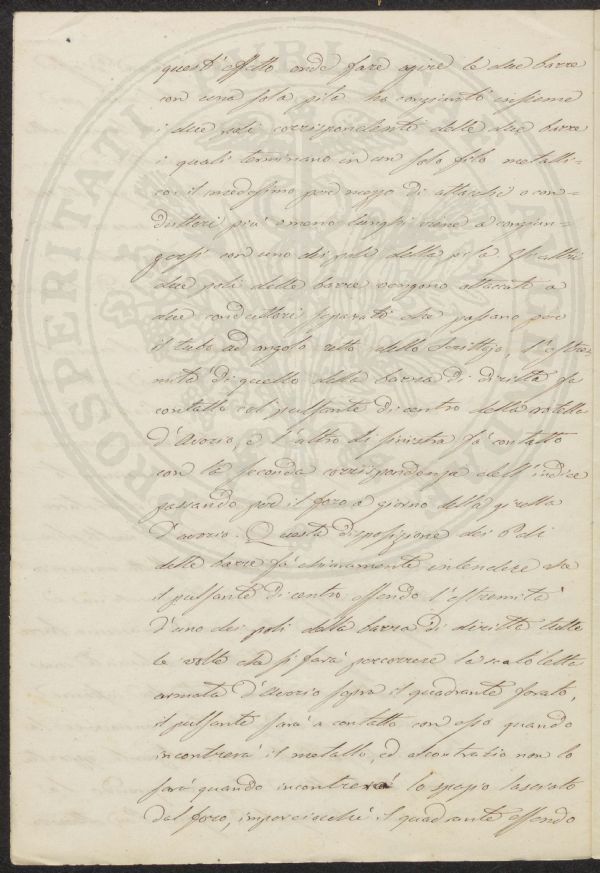 quest' effetto onde fare agire le due barre
con una sola pila ho congiunto insieme
i due poli corrispondenti delle due barre
i quali terminano in un solo filo metalli=
co: il medesimo per mezzo di attacchi o con=
duttori più o meno lunghi viene a congiun=
gersi con uno dei poli della pila. Gli altri
due poli delle barre vengono attaccati a
due conduttori separati che passano per
il tubo ad angolo retto dello Scrittojo, l'estre=
mità di quello della barra di diritta fa
contatto col pulsante di centro della rotella
d'Avorio, e l'altro di sinistra fà contatto
con la seconda corrispondenza dell'indice
passando per il foro a giorno della girella
d'avorio. Questa disposizione dei Poli
delle barre fà chiaramente intendere che
il pulsante di centro essendo l'estremità
d'uno dei poli della barra di diritta tutte
le volte che si farà percorrere la
armata d'Avorio sopra il quadrante forato,
il pulsante sarà a contatto con esso quando
incontrerà il metallo, ed al contrario non lo
sarà quando incontrerà lo spazio lasciato
dal foro, imperciocchè il quadrante essendo
PROSPERITATI PUBLICAE